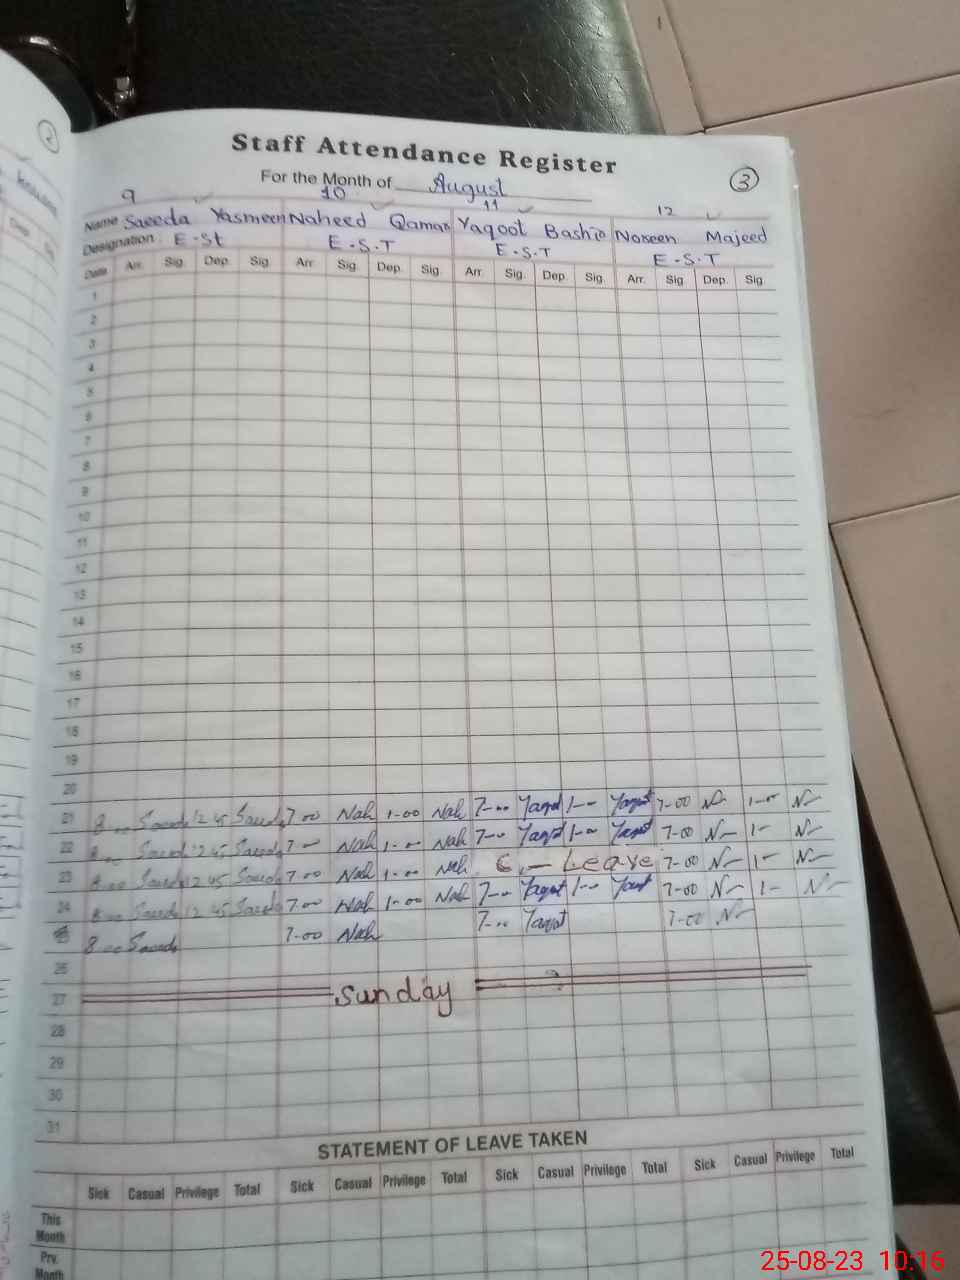 2
3
Staff Attendance Register
For the Month of August
9 10 11 12
Name Saeeda Yasmeen Naheed Qamar Yaqoot Bashir Noreen Majeed
Designation: E-St E.S.T E-S.T E-S.T
Date Arr. Sig. Dep. Sig. Arr. Sig. Dep. Sig. Arr. Sig. Dep. Sig. Arr. Sig. Dep. Sig.
1
2
3
4
5
6
7
8
9
10
11
12
13
14
15
16
17
18
19
20
21 8 Saeeda 12 45 Saeeda 7 00 Nah 1-00 Nah 7- Yaqot 1- Yaqot 7-00 N 1- N
22 8 Saeeda 12 45 Saeeda 7 Nah 1- Nah 7- Yaqot 1- Yaqot 7-00 N 1- N
23 8 Saeeda 12 45 Saeeda 7.00 Nah 1-00 Nah C.- Leave 7-00 N 1- N
24 8 Saeeda 12 45 Saeeda 7.00 Nah 1-00 Nah 7- Yaqot 1- Yaqot 7-00 N 1- N
8 Saeeda 7-00 Nah 7- Yaqot 7-00 N
26
27 Sunday
28
29
30
31
STATEMENT OF LEAVE TAKEN
Sick Casual Privilege Total Sick Casual Privilege Total Sick Casual Privilege Total Sick Casual Privilege Total
This Month
Prv. Month
25-08-23 10:16